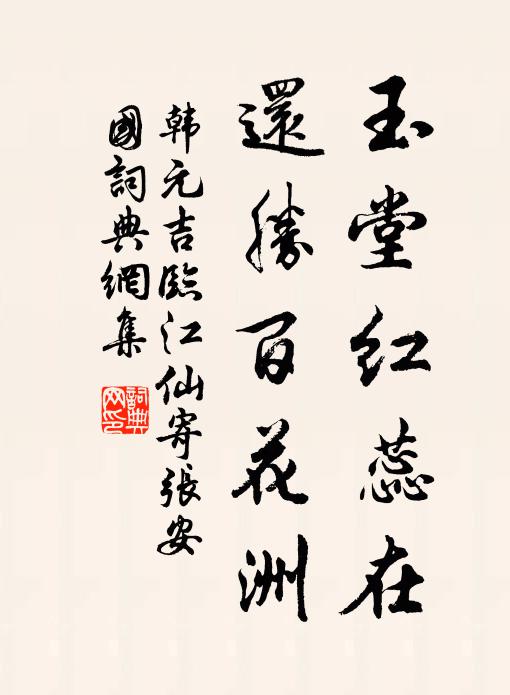 玉堂红蕊在
還勝百花洲
韩元吉臨江仙寄張安
國詞典網集
詞典
网印